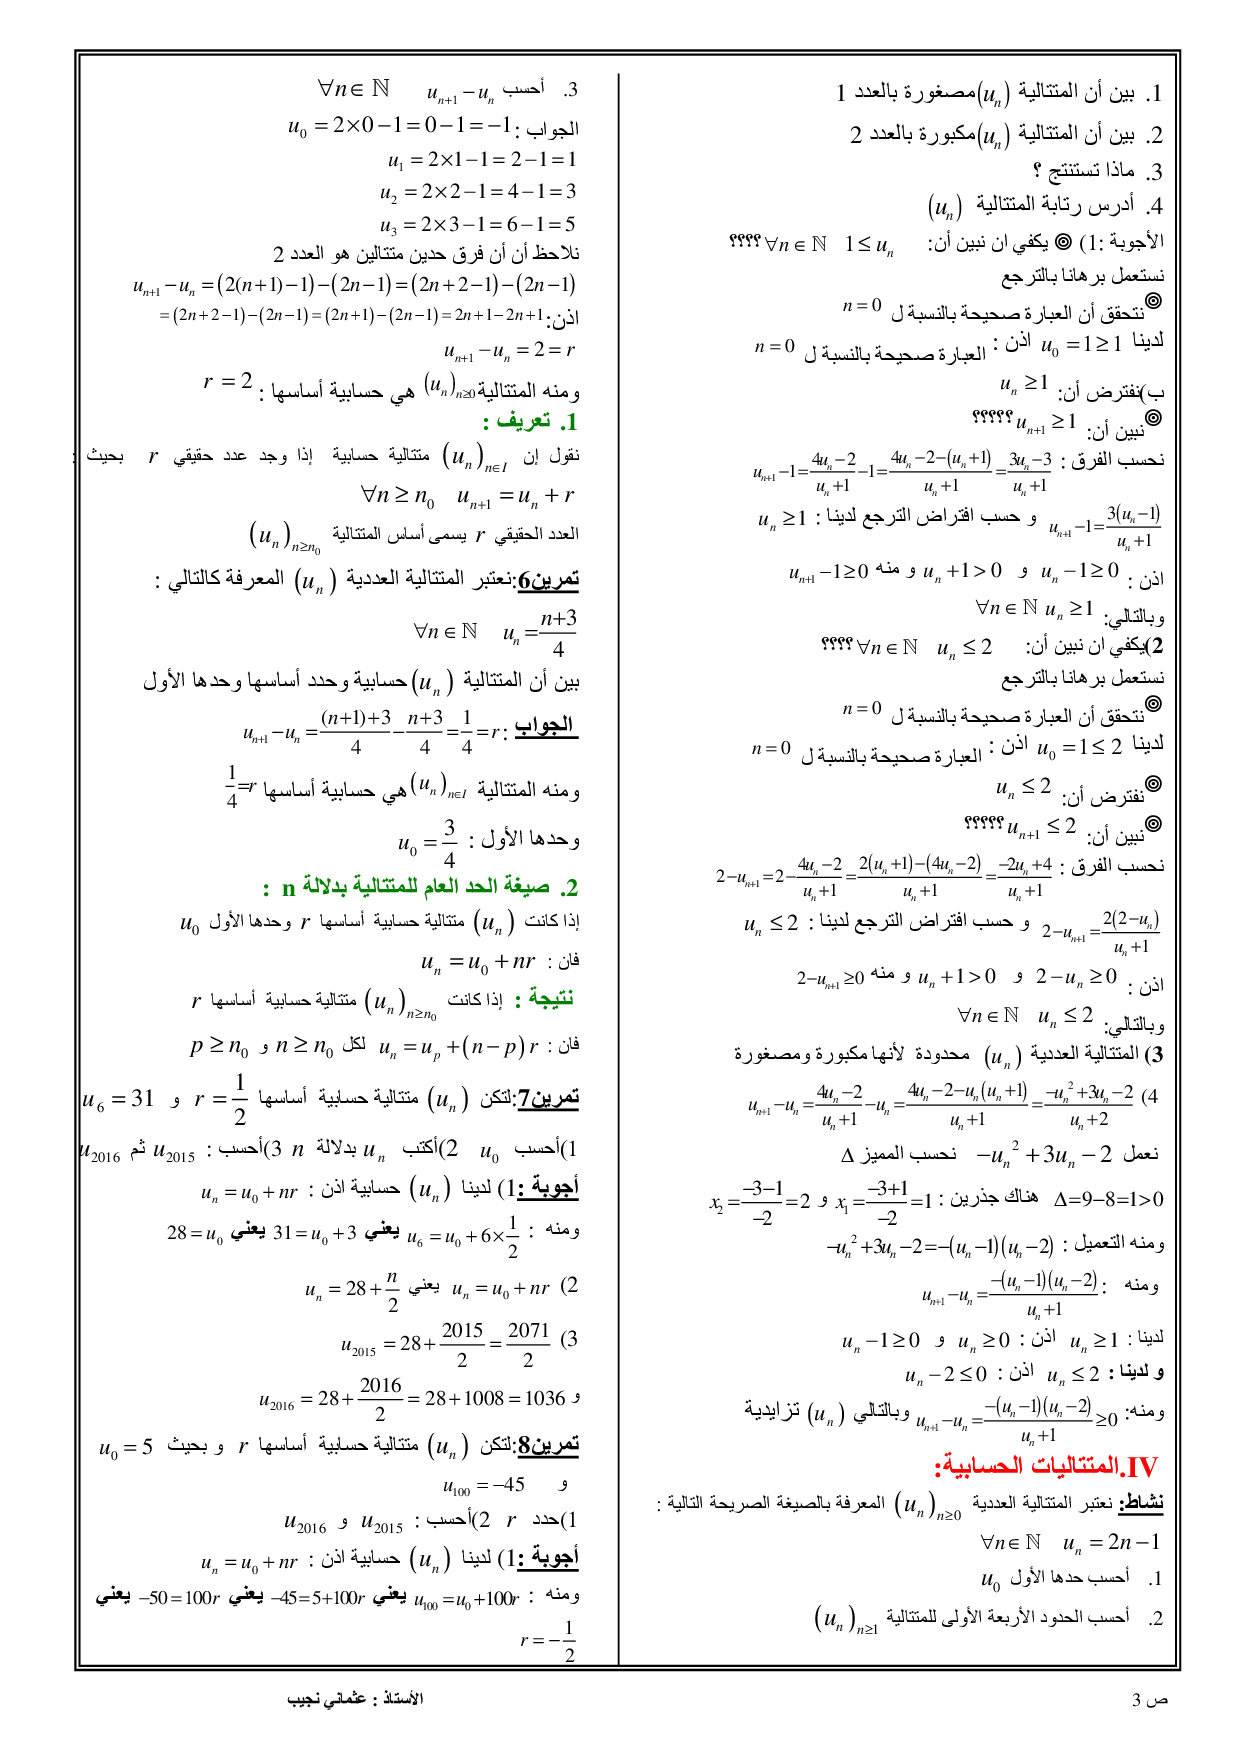 1. بين أن المتتالية (u_n) مصغورة بالعدد 1
2. بين أن المتتالية (u_n) مكبورة بالعدد 2
3. ماذا تستنتج ؟
4. أدرس رتابة المتتالية (u_n)
الأجوبة :1) ⊚ يكفي ان نبين أن: 1 ≤ u_n ∀n ∈ ℕ ؟؟؟؟
نستعمل برهانا بالترجع
⊚نتحقق أن العبارة صحيحة بالنسبة ل n = 0
لدينا u_0 = 1 ≥ 1 اذن : العبارة صحيحة بالنسبة ل n = 0
ب)نفترض أن: u_n ≥ 1
⊚نبين أن: u_{n+1} ≥ 1 ؟؟؟؟؟
نحسب الفرق : u_{n+1} − 1 = (4u_n − 2)/(u_n + 1) − 1 = (4u_n − 2 − (u_n + 1))/(u_n + 1) = (3u_n − 3)/(u_n + 1)
u_{n+1} − 1 = 3(u_n − 1)/(u_n + 1) و حسب افتراض الترجع لدينا : u_n ≥ 1
اذن : u_n − 1 ≥ 0 و u_n + 1 > 0 و منه u_{n+1} − 1 ≥ 0
وبالتالي: ∀n ∈ ℕ u_n ≥ 1
2)يكفي ان نبين أن: ∀n ∈ ℕ u_n ≤ 2 ؟؟؟؟
نستعمل برهانا بالترجع
⊚نتحقق أن العبارة صحيحة بالنسبة ل n = 0
لدينا u_0 = 1 ≤ 2 اذن : العبارة صحيحة بالنسبة ل n = 0
⊚نفترض أن: u_n ≤ 2
⊚نبين أن: u_{n+1} ≤ 2 ؟؟؟؟؟
نحسب الفرق : 2 − u_{n+1} = 2 − (4u_n − 2)/(u_n + 1) = (2(u_n + 1) − (4u_n − 2))/(u_n + 1) = (−2u_n + 4)/(u_n + 1)
2 − u_{n+1} = 2(2 − u_n)/(u_n + 1) و حسب افتراض الترجع لدينا : u_n ≤ 2
اذن : 2 − u_n ≥ 0 و u_n + 1 > 0 و منه 2 − u_{n+1} ≥ 0
وبالتالي: ∀n ∈ ℕ u_n ≤ 2
3) المتتالية العددية (u_n) محدودة لأنها مكبورة ومصغورة
4) u_{n+1} − u_n = (4u_n − 2)/(u_n + 1) − u_n = (4u_n − 2 − u_n(u_n + 1))/(u_n + 1) = (−u_n² + 3u_n − 2)/(u_n + 2)
نعمل −u_n² + 3u_n − 2 نحسب المميز Δ
Δ = 9 − 8 = 1 > 0 هناك جذرين : x_1 = (−3 + 1)/(−2) = 1 و x_2 = (−3 − 1)/(−2) = 2
ومنه التعميل : −u_n² + 3u_n − 2 = −(u_n − 1)(u_n − 2)
ومنه : u_{n+1} − u_n = −(u_n − 1)(u_n − 2)/(u_n + 1)
لدينا : u_n ≥ 1 اذن : u_n ≥ 0 و u_n − 1 ≥ 0
و لدينا : u_n ≤ 2 اذن : u_n − 2 ≤ 0
ومنه: u_{n+1} − u_n = −(u_n − 1)(u_n − 2)/(u_n + 1) ≥ 0 وبالتالي (u_n) تزايدية
IV.المتتاليات الحسابية:
نشاط: نعتبر المتتالية العددية (u_n)_{n≥0} المعرفة بالصيغة الصريحة التالية :
∀n ∈ ℕ u_n = 2n − 1
1. أحسب حدها الأول u_0
2. أحسب الحدود الأربعة الأولى للمتتالية (u_n)_{n≥1}
3. أحسب u_{n+1} − u_n ∀n ∈ ℕ
الجواب : u_0 = 2×0 − 1 = 0 − 1 = −1
u_1 = 2×1 − 1 = 2 − 1 = 1
u_2 = 2×2 − 1 = 4 − 1 = 3
u_3 = 2×3 − 1 = 6 − 1 = 5
نلاحظ أن أن فرق حدين متتالين هو العدد 2
u_{n+1} − u_n = (2(n+1) − 1) − (2n − 1) = (2n + 2 − 1) − (2n − 1)
اذن: = (2n + 2 − 1) − (2n − 1) = (2n + 1) − (2n − 1) = 2n + 1 − 2n + 1
u_{n+1} − u_n = 2 = r
ومنه المتتالية (u_n)_{n≥0} هي حسابية أساسها : r = 2
1. تعريف :
نقول إن (u_n)_{n∈I} متتالية حسابية إذا وجد عدد حقيقي r بحيث :
∀n ≥ n_0 u_{n+1} = u_n + r
العدد الحقيقي r يسمى أساس المتتالية (u_n)_{n≥n_0}
تمرين6:نعتبر المتتالية العددية (u_n) المعرفة كالتالي :
∀n ∈ ℕ u_n = (n+3)/4
بين أن المتتالية (u_n) حسابية وحدد أساسها وحدها الأول
الجواب : u_{n+1} − u_n = ((n+1)+3)/4 − (n+3)/4 = 1/4 = r
ومنه المتتالية (u_n)_{n∈I} هي حسابية أساسها 1/4 = r
وحدها الأول : u_0 = 3/4
2. صيغة الحد العام للمتتالية بدلالة n :
إذا كانت (u_n) متتالية حسابية أساسها r وحدها الأول u_0
فان : u_n = u_0 + nr
نتيجة : إذا كانت (u_n)_{n≥n_0} متتالية حسابية أساسها r
فان : u_n = u_p + (n − p)r لكل n ≥ n_0 و p ≥ n_0
تمرين7:لتكن (u_n) متتالية حسابية أساسها r = 1/2 و u_6 = 31
1)أحسب u_0 2)أكتب u_n بدلالة n 3)أحسب : u_2015 ثم u_2016
أجوبة :1) لدينا (u_n) حسابية اذن : u_n = u_0 + nr
ومنه : u_6 = u_0 + 6×1/2 يعني 31 = u_0 + 3 يعني 28 = u_0
2) u_n = u_0 + nr يعني u_n = 28 + n/2
3) u_2015 = 28 + 2015/2 = 2071/2
و u_2016 = 28 + 2016/2 = 28 + 1008 = 1036
تمرين8:لتكن (u_n) متتالية حسابية أساسها r و بحيث u_0 = 5
و u_100 = −45
1)حدد r 2)أحسب : u_2015 و u_2016
أجوبة :1) لدينا (u_n) حسابية اذن : u_n = u_0 + nr
ومنه : u_100 = u_0 + 100r يعني −45 = 5 + 100r يعني −50 = 100r يعني
r = −1/2
ص 3
الأستاذ : عثماني نجيب